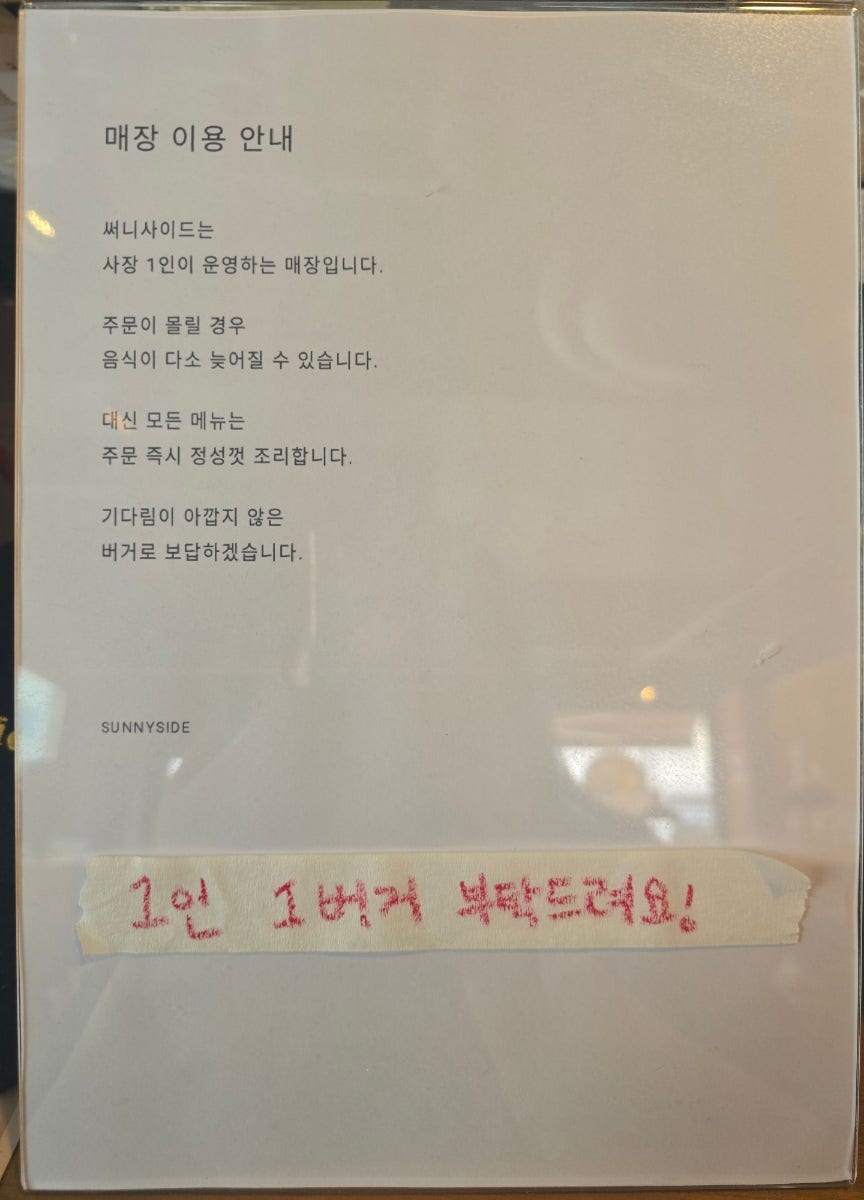 매장 이용 안내
써니사이드는
사장 1인이 운영하는 매장입니다.
주문이 몰릴 경우
음식이 다소 늦어질 수 있습니다.
대신 모든 메뉴는
주문 즉시 정성껏 조리합니다.
기다림이 아깝지 않은
버거로 보답하겠습니다.
SUNNYSIDE
1인 1버거 부탁드려요!